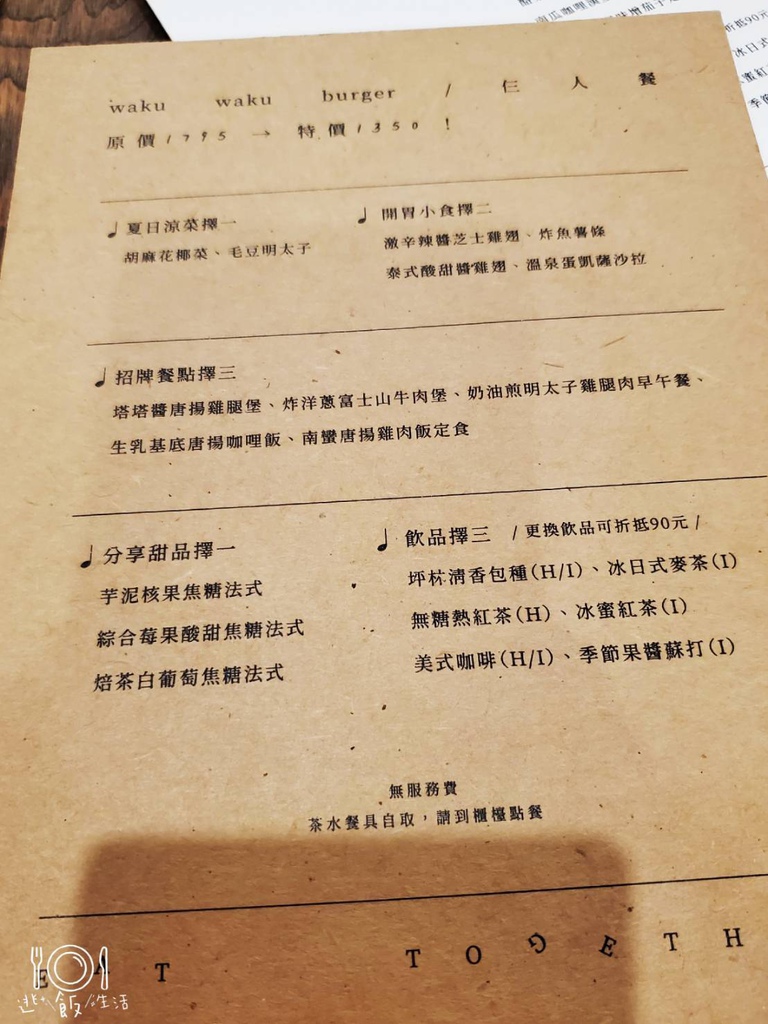 waku waku burger / 仨人餐
原價1795 → 特價1350！
夏日涼菜擇一
胡麻花椰菜、毛豆明太子
開胃小食擇二
激辛辣醬芝士雞翅、炸魚薯條
泰式酸甜醬雞翅、溫泉蛋凱薩沙拉
招牌餐點擇三
塔塔醬唐揚雞腿堡、炸洋蔥富士山牛肉堡、奶油煎明太子雞腿肉早午餐、
生乳基底唐揚咖哩飯、南蠻唐揚雞肉飯定食
分享甜品擇一
芋泥核果焦糖法式
綜合莓果酸甜焦糖法式
焙茶白葡萄焦糖法式
飲品擇三 / 更換飲品可折抵90元 /
坪林清香包種(H/I)、冰日式麥茶(I)
無糖熱紅茶(H)、冰蜜紅茶(I)
美式咖啡(H/I)、季節果醬蘇打(I)
無服務費
茶水餐具自取，請到櫃檯點餐
EAT TOGETH